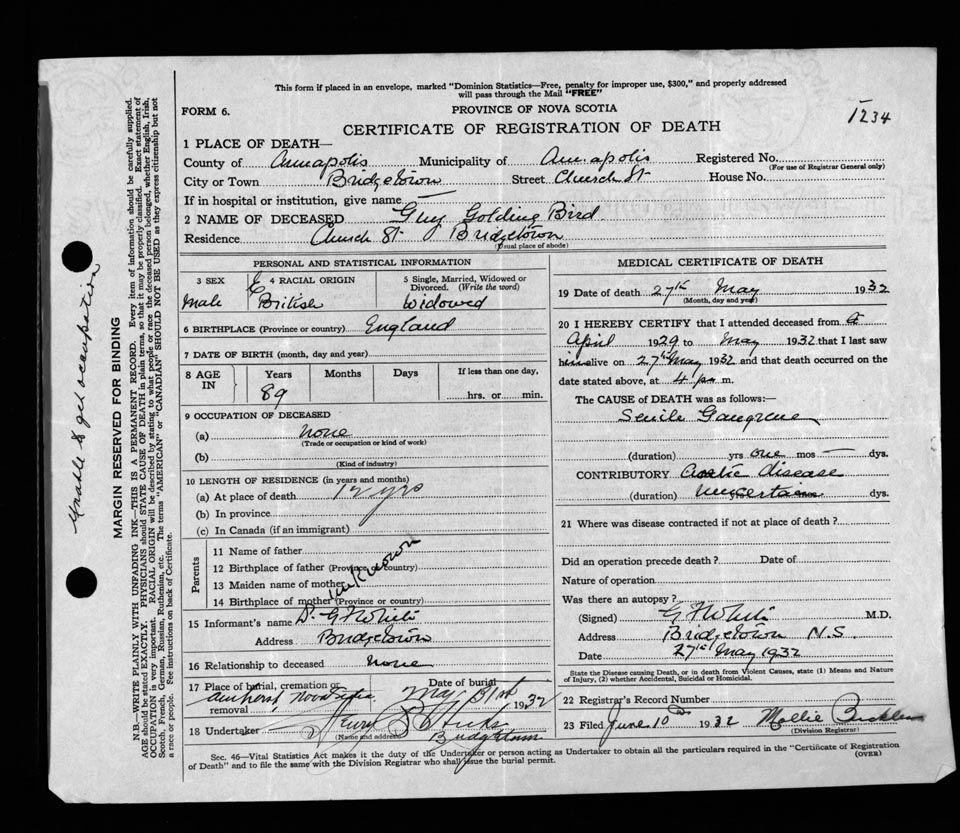 This form if placed in an envelope, marked "Dominion Statistics—Free, penalty for improper use, $300," and properly addressed
will pass through the Mail "FREE"
FORM 6.
PROVINCE OF NOVA SCOTIA
1234
CERTIFICATE OF REGISTRATION OF DEATH
1 PLACE OF DEATH—
County of Annapolis Municipality of Annapolis Registered No.
(For use of Registrar General only)
City or Town Bridgetown Street Church St House No.
If in hospital or institution, give name —
2 NAME OF DECEASED Guy Golding Bird
Residence Church St. Bridgetown
(Usual place of abode)
PERSONAL AND STATISTICAL INFORMATION
3 SEX Male
E
4 RACIAL ORIGIN British
5 Single, Married, Widowed or Divorced. (Write the word) Widowed
6 BIRTHPLACE (Province or country) England
7 DATE OF BIRTH (month, day and year)
8 AGE IN
Years Months Days If less than one day,
89 hrs. or min.
9 OCCUPATION OF DECEASED
(a) none
(Trade or occupation or kind of work)
(b)
(Kind of industry)
10 LENGTH OF RESIDENCE (in years and months)
(a) At place of death 12 yrs
(b) In province
(c) In Canada (if an immigrant)
Parents
11 Name of father
12 Birthplace of father (Province or country)
13 Maiden name of mother
14 Birthplace of mother (Province or country)
unknown
15 Informant's name Dr G F White
Address Bridgetown
16 Relationship to deceased none
17 Place of burial, cremation or removal Amherst Nova Scotia
Date of burial May 31st 1932
18 Undertaker Hicks
(Name and address) Bridgetown
MEDICAL CERTIFICATE OF DEATH
19 Date of death 27th May 1932
(Month, day and year)
20 I HEREBY CERTIFY that I attended deceased from
April 1929 to May 1932 that I last saw
him alive on 27th May 1932 and that death occurred on
date stated above, at 4 p. m.
The CAUSE of DEATH was as follows:—
Senile Gangrene
(duration) yrs one mos — dys.
CONTRIBUTORY Aortic disease
(duration) uncertain dys.
21 Where was disease contracted if not at place of death?
Did an operation precede death? Date of
Nature of operation
Was there an autopsy?
(Signed) G F White M.D.
Address Bridgetown N.S.
Date 27th May 1932
State the Disease causing Death, or in death from Violent Causes, state (1) Means and Nature
of Injury, (2) whether Accidental, Suicidal or Homicidal.
22 Registrar's Record Number
23 Filed June 10 1932 Mollie
(Division Registrar)
Sec. 46—Vital Statistics Act makes it the duty of the Undertaker or person acting as Undertaker to obtain all the particulars required in the "Certificate of Registration
of Death" and to file the same with the Division Registrar who shall issue the burial permit.
(OVER)
to get occupation
MARGIN RESERVED FOR BINDING
N.B.—WRITE PLAINLY WITH UNFADING INK—THIS IS A PERMANENT RECORD. Every item of information should be carefully supplied.
AGE should be stated EXACTLY. PHYSICIANS should STATE CAUSE OF DEATH in plain terms, so that it may be properly classified. Exact statement of
OCCUPATION is very important. RACIAL ORIGIN will be described by stating to what people or race the deceased person belonged, whether English, Irish,
Scotch, French, German, Russian, Ruthenian, etc. The terms "AMERICAN" or "CANADIAN" SHOULD NOT BE USED as they express citizenship but not
a race or people. See instructions on back of Certificate.